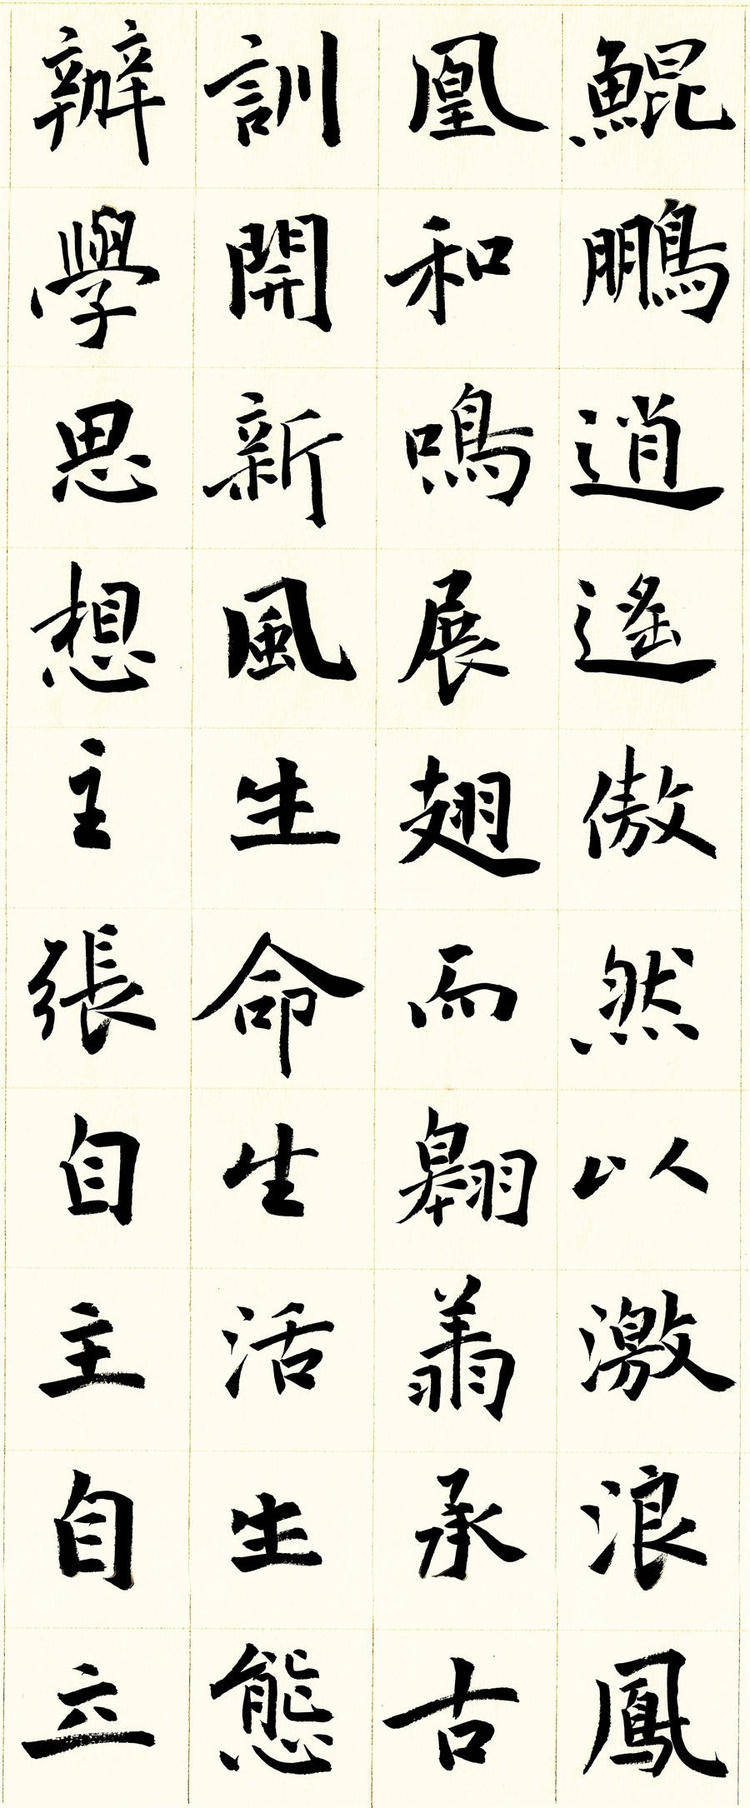 鯤鵬逍遙傲然以激浪鳳
凰和鳴展翅而翱翥承古
訓開新風生命生活生態
辦學思想主張自主自立